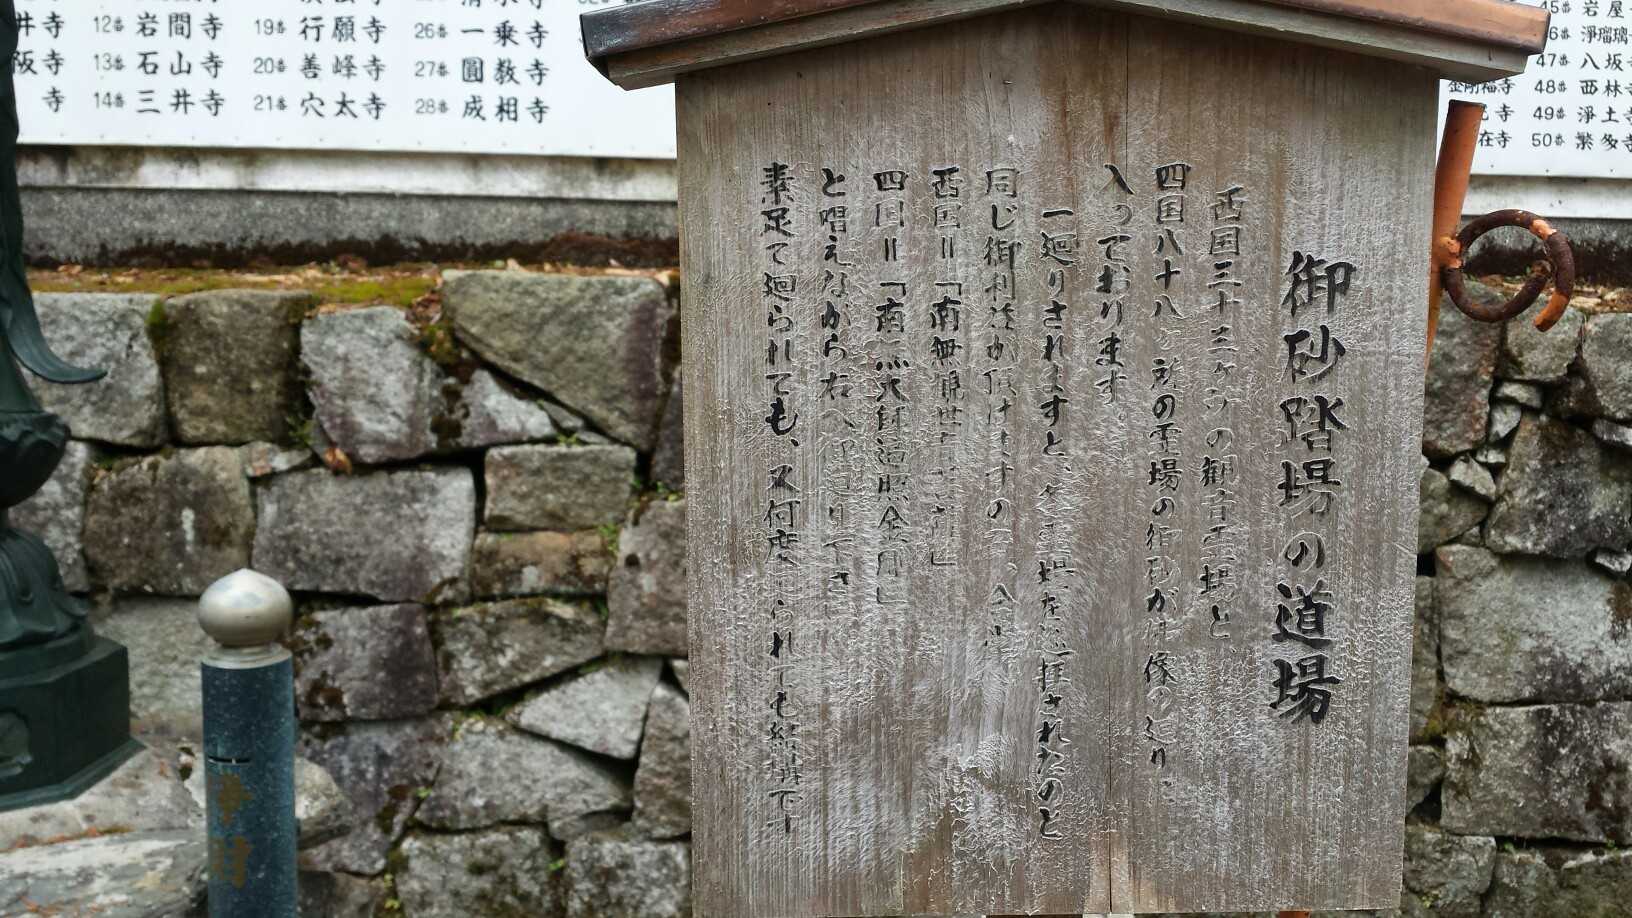 御砂踏場の道場
西国三十三ヶ所の観音霊場と、
四国八十八ヶ所の霊場の御砂が仏像の辺りに
入っております。
一廻りされますと、各霊場を巡拝されたのと
同じ御利益が頂けますので、合掌
西国=「南無観世音菩薩」
四国=「南無大師遍照金剛」
と唱えながら右へ御廻り下さい
素足で廻られても、又何度廻られても結構です
井寺
阪寺
寺
12番 岩間寺
13番 石山寺
14番 三井寺
19番 行願寺
20番 善峰寺
21番 穴太寺
清水寺
26番 一乗寺
27番 圓教寺
28番 成相寺
金剛福寺
45番 岩屋
浄瑠璃
47番 八坂寺
48番 西林寺
49番 浄土寺
50番 繁多寺
浄財